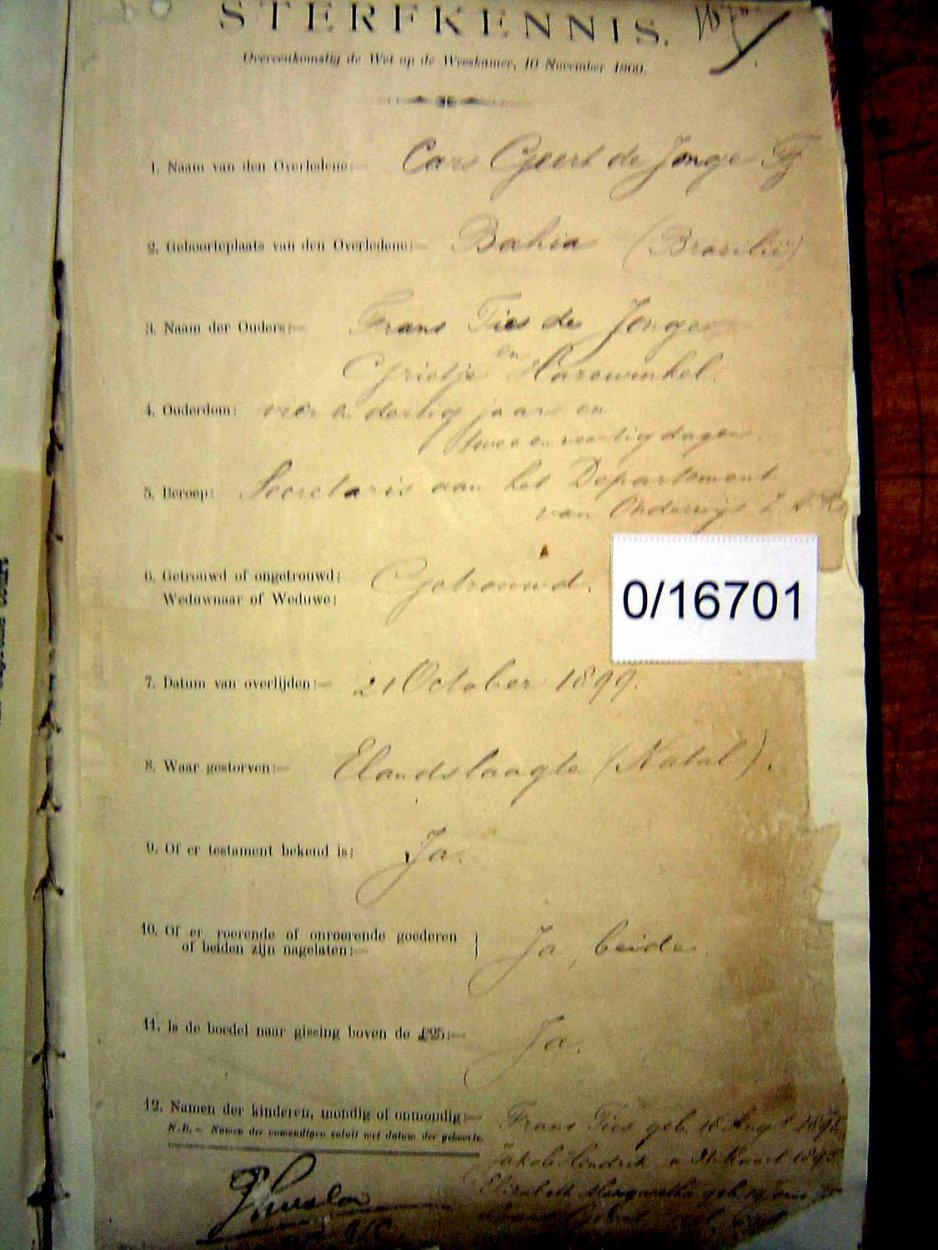 STERFKENNIS.
Overeenkomstig de Wet op de Weeskamer, 10 November 1866.
1. Naam van den Overledene:— Cars Geert de Jonge
2. Geboorteplaats van den Overledene:— Bahia (Brasilië)
3. Naam der Ouders:— Frans Ties de Jonge
en
Grietje Harewinkel.
4. Ouderdom: vier en dertig jaar en
twee en veertig dagen.
5. Beroep: Secretaris aan het Departement
van Onderwijs Z. A. R.
6. Getrouwd of ongetrouwd; Getrouwd.
Weduwnaar of Weduwe;
0/16701
7. Datum van overlijden:— 21 October 1899.
8. Waar gestorven:— Elandslaagte (Natal).
9. Of er testament bekend is; Ja.
10. Of er roerende of onroerende goederen
of beiden zijn nagelaten:— Ja, beide.
11. Is de boedel naar gissing boven de £25:— Ja.
12. Namen der kinderen, mondig of onmondig:— Frans Ties geb. 18 Augt
N.B.— Namen der onmondigen voluit met datum der geboorte.
Jakob Hendrik " 31 Maart
Elizabeth Margaretha geb. 14